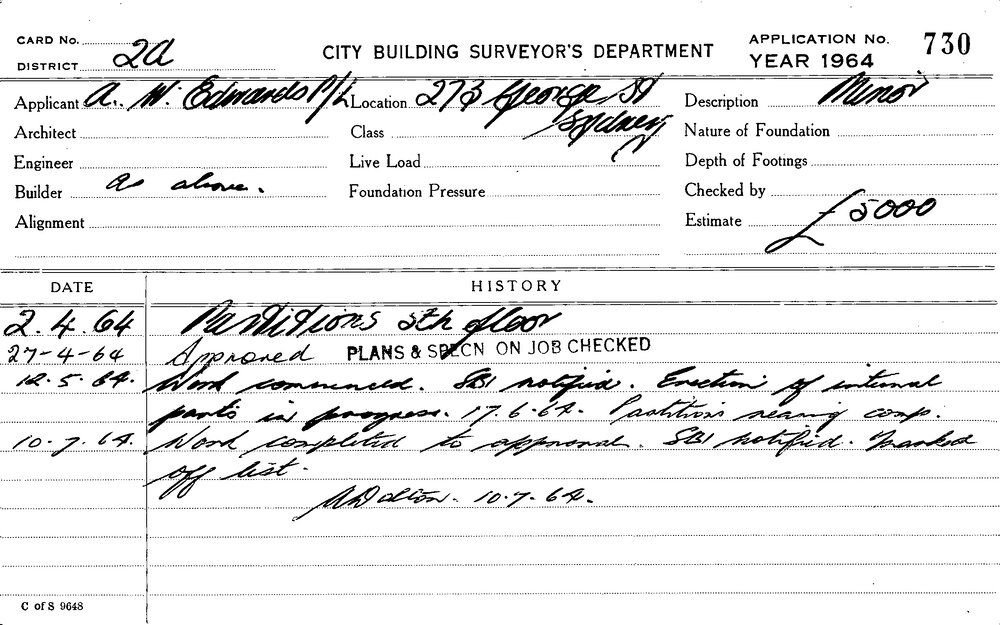 CARD No.
DISTRICT 2A
CITY BUILDING SURVEYOR'S DEPARTMENT
APPLICATION No. 730
YEAR 1964
Applicant A. W. Edwards P/L Location 273 George St Sydney Description Minor
Architect Class Nature of Foundation
Engineer Live Load Depth of Footings
Builder As above. Foundation Pressure Checked by
Alignment Estimate £5000
DATE HISTORY
2.4.64 Partitions 5th floor
27-4-64 Approved PLANS & SPECN ON JOB CHECKED
12.5.64. Work commenced. SBI notified. Erection of internal
parts in progress. 17.6.64. Partitions nearing comp.
10.7.64. Work completed to approval. SBI notified. Marked
off list.
ADalton. 10.7.64.
C of S 9648